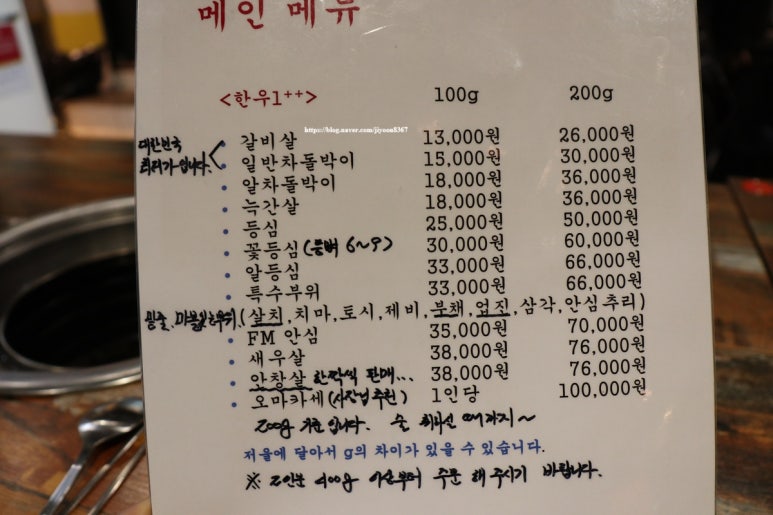 메인 메뉴
<한우1++> 100g 200g
https://blog.naver.com/jiyoon8367
대한민국
최저가입니다.
갈비살 13,000원 26,000원
일반차돌박이 15,000원 30,000원
알차돌박이 18,000원 36,000원
늑간살 18,000원 36,000원
등심 25,000원 50,000원
꽃등심 (등뼈 6~9) 30,000원 60,000원
알등심 33,000원 66,000원
특수부위 33,000원 66,000원
(살치,치마,토시,제비,부채,업진,삼각,안심추리)
FM 안심 35,000원 70,000원
새우살 38,000원 76,000원
안창살 한짝씩 판매... 38,000원 76,000원
오마카세 (사장님 추천) 1인당 100,000원
200g 기준 입니다.
저울에 달아서 g의 차이가 있을 수 있습니다.
※ 2인분 400g 이상부터 주문 해 주시기 바랍니다.